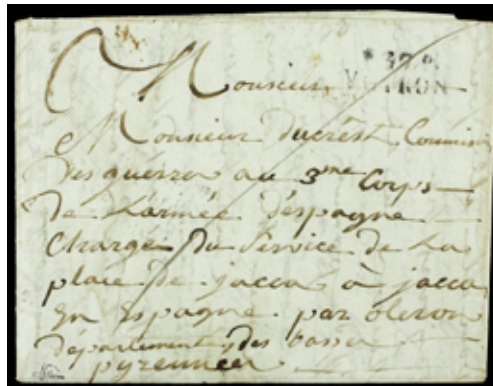 37
Monsieur
Monsieur Ducrest Commis
des guerres au 3me Corps
de L'armée d'espagne
Chargé du Service de La
place de jacca à jacca
En Espagne par oleron
département des basses
pyrennées